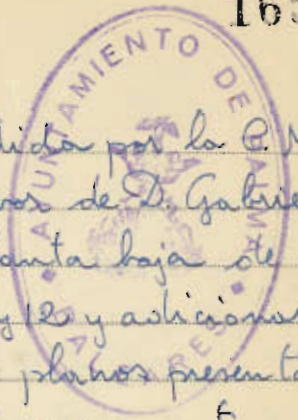 165
AYUNTAMIENTO DE PALMA
dida por la C. M
vos de D. Gabrie
anta baja de
y 12 y adiciona
planos presenta